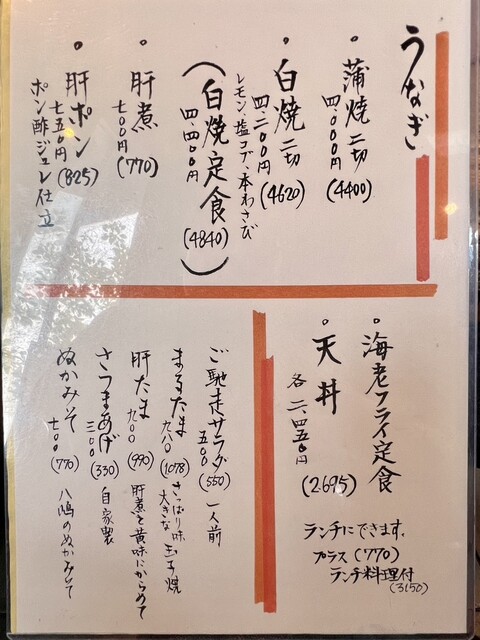 うなぎ
。蒲焼 二切
四、〇〇〇円 (4400)
。白焼 二切
四、二〇〇円 (4620)
レモン、塩コブ、本わさび
(白焼定食
四、四〇〇円 (4840))
。肝煮
七〇〇円 (770)
。肝ポン
七五〇円 (825)
ポン酢ジュレ仕立
。海老フライ定食
。天丼
各 二、四五〇円 (2.695)
ランチにできます。
プラス (770)
ランチ料理付
(3150)
ご馳走サラダ 一人前
五〇〇 (550)
まるたま さっぱり味
九八〇 (1078) 大きな玉子焼
肝たま
九〇〇 (990) 肝煮を黄味にからめて
さつまあげ
三〇〇 (330) 自家製
ぬかみそ
七〇〇 (770) 八嶋のぬかみそで